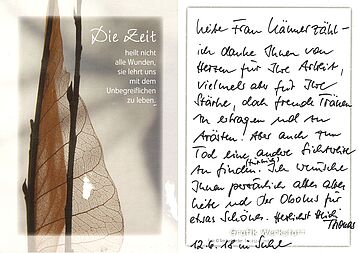 Die Zeit
heilt nicht
alle Wunden,
sie lehrt uns
mit dem
Unbegreiflichen
zu leben.
Liebe Frau
ich danke Ihnen von
Herzen für Ihre Arbeit,
vielmehr als für Ihre
Stärke, doch fremde Tränen
zu ertragen und zu
trösten. Aber auch zum
Tod eine andere Sichtweise
zu finden. Ich wünsche
Ihnen persönlich alles alles
liebe und der Obolus für
etwas Schönes. Herzlichst
Thomas
Grafik Werkstatt
12.6.18 in